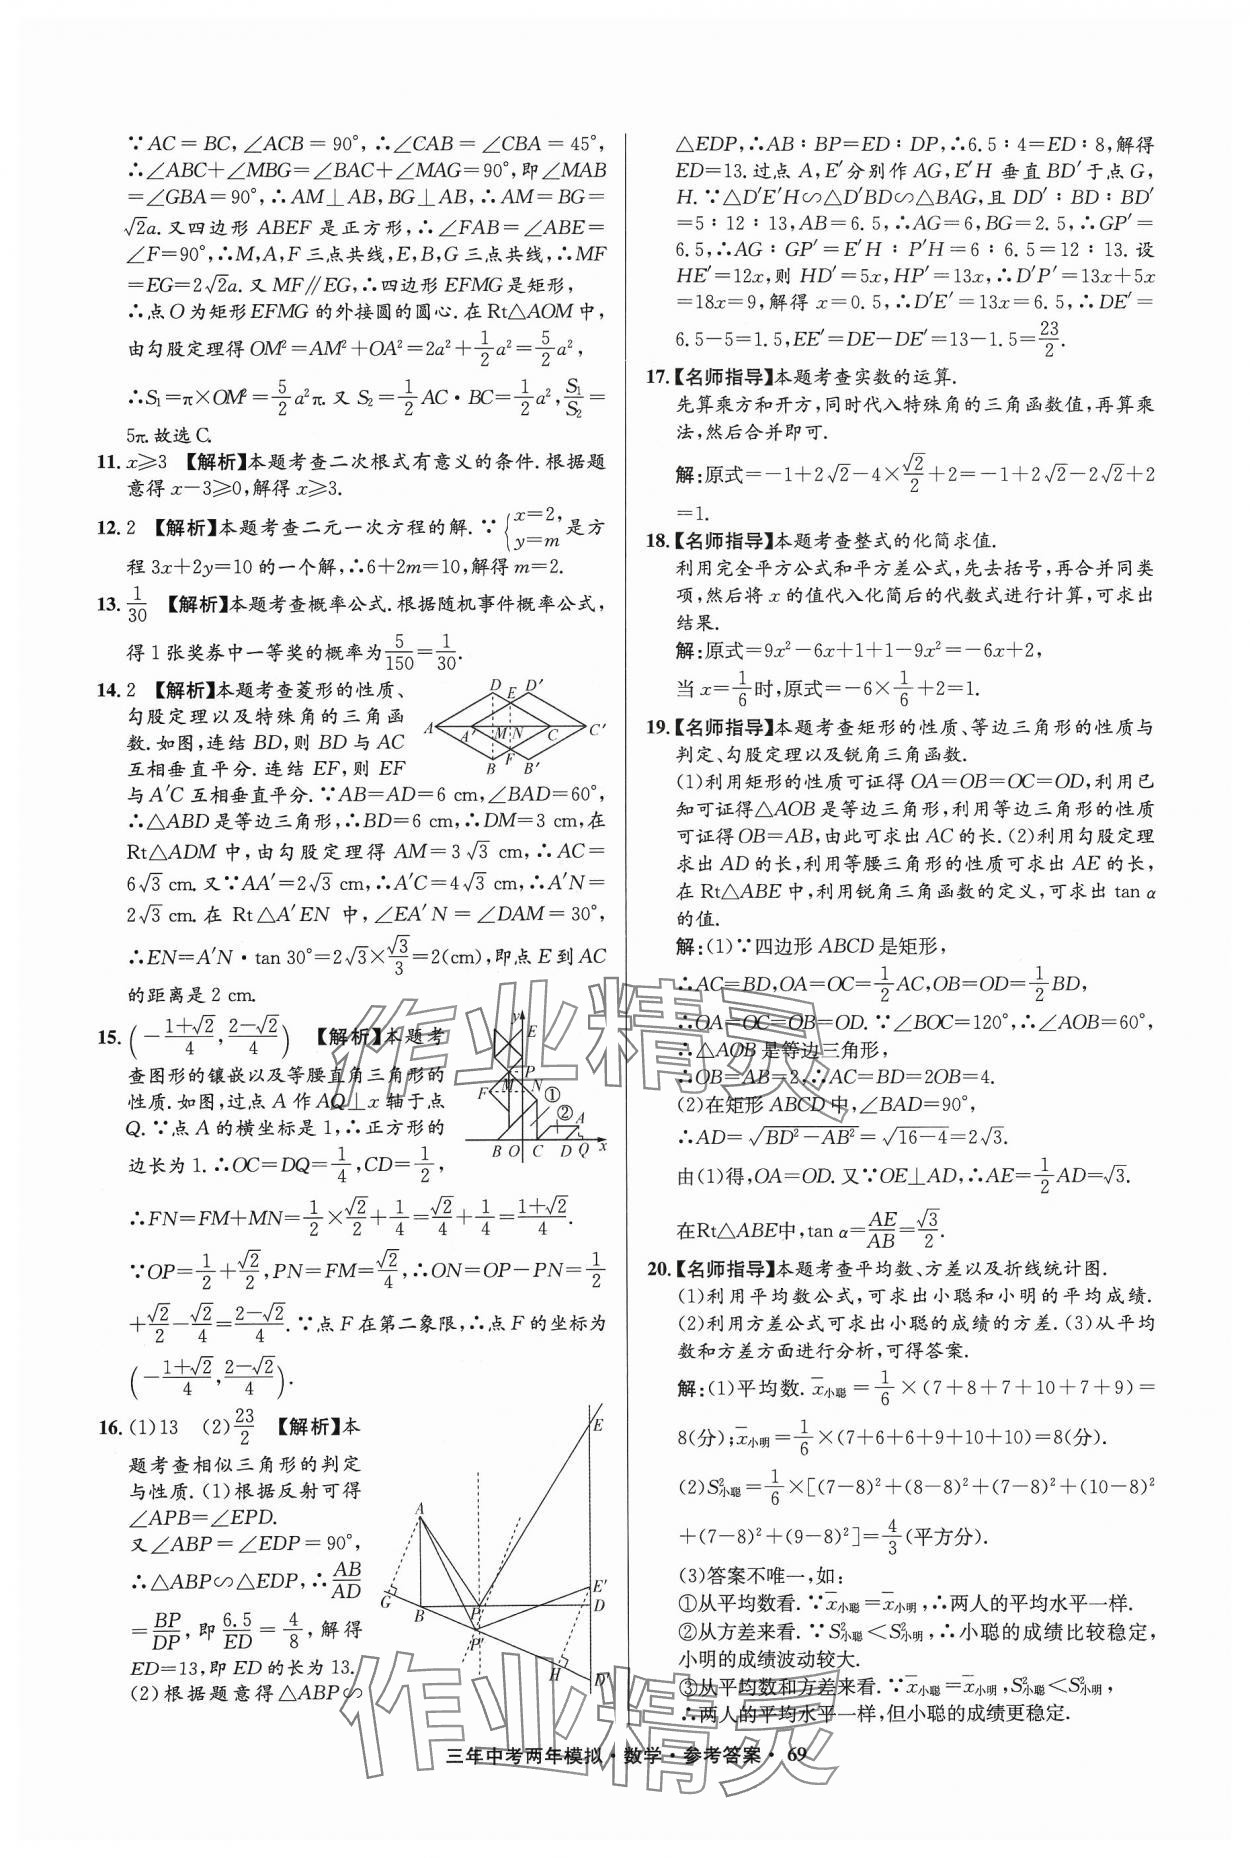 ∵AC=BC,∠ACB=90°,∴∠CAB=∠CBA=45°,
∴∠ABC+∠MBG=∠BAC+∠MAG=90°,即∠MAB
=∠GBA=90°,∴AM⊥AB,BG⊥AB,∴AM=BG=
√2a.又四边形ABEF是正方形,∴∠FAB=∠ABE=
∠F=90°,∴M,A,F三点共线,E,B,G三点共线,∴MF
=EG=2√2a.又MF∥EG,∴四边形EFMG是矩形,
∴点O为矩形EFMG的外接圆的圆心.在Rt△AOM中,
由勾股定理得OM²=AM²+OA²=2a²+1/2a²=5/2a²,
∴S₁=π×OM²=5/2a²π.又S₂=1/2AC·BC=1/2a²,S₁/S₂=
5π.故选C.
11. x≥3 【解析】本题考查二次根式有意义的条件.根据题
意得x-3≥0,解得x≥3.
12. 2 【解析】本题考查二元一次方程的解.∵{x=2, y=m 是方
程3x+2y=10的一个解,∴6+2m=10,解得m=2.
13. 1/30 【解析】本题考查概率公式.根据随机事件概率公式,
得1张奖券中一等奖的概率为5/150=1/30.
14. 2 【解析】本题考查菱形的性质、
勾股定理以及特殊角的三角函
数.如图,连结BD,则BD与AC
互相垂直平分.连结EF,则EF
D E D′
A A′ M N C C′
B F B′
与A′C互相垂直平分.∵AB=AD=6 cm,∠BAD=60°,
∴△ABD是等边三角形,∴BD=6 cm,∴DM=3 cm,在
Rt△ADM中,由勾股定理得AM=3√3 cm,∴AC=
6√3 cm.又∵AA′=2√3 cm,∴A′C=4√3 cm,∴A′N=
2√3 cm.在Rt△A′EN中,∠EA′N=∠DAM=30°,
∴EN=A′N·tan 30°=2√3×√3/3=2(cm),即点E到AC
的距离是2 cm.
15. (-(1+√2)/4,(2-√2)/4) 【解析】本题考
查图形的镶嵌以及等腰直角三角形的
性质.如图,过点A作AQ⊥x轴于点
Q.∵点A的横坐标是1,∴正方形的
边长为1.∴OC=DQ=1/4,CD=1/2,
y E
P
F M N
① ② A
B O C D Q x
∴FN=FM+MN=1/2×√2/2+1/4=√2/4+1/4=(1+√2)/4.
∵OP=1/2+√2/2,PN=FM=√2/4,∴ON=OP-PN=1/2
+√2/2-√2/4=(2-√2)/4.∵点F在第二象限,∴点F的坐标为
(-(1+√2)/4,(2-√2)/4).
16. (1)13 (2)23/2 【解析】本
题考查相似三角形的判定
与性质.(1)根据反射可得
∠APB=∠EPD.
又∠ABP=∠EDP=90°,
∴△ABP∽△EDP,∴AB/AD
=BP/DP,即6.5/ED=4/8,解得
ED=13,即ED的长为13.
(2)根据题意得△ABP∽
E
A
E′
G B P D
P′
H D′
△EDP,∴AB∶BP=ED∶DP,∴6.5∶4=ED∶8,解得
ED=13.过点A,E′分别作AG,E′H垂直BD′于点G,
H.∵△D′E′H∽△D′BD∽△BAG,且DD′∶BD∶BD′
=5∶12∶13,AB=6.5,∴AG=6,BG=2.5,∴GP′=
6.5,∴AG∶GP′=E′H∶P′H=6∶6.5=12∶13.设
HE′=12x,则HD′=5x,HP′=13x,∴D′P′=13x+5x
=18x=9,解得x=0.5,∴D′E′=13x=6.5,∴DE′=
6.5-5=1.5,EE′=DE-DE′=13-1.5=23/2.
17.【名师指导】本题考查实数的运算.
先算乘方和开方,同时代入特殊角的三角函数值,再算乘
法,然后合并即可.
解:原式=-1+2√2-4×√2/2+2=-1+2√2-2√2+2
=1.
18.【名师指导】本题考查整式的化简求值.
利用完全平方公式和平方差公式,先去括号,再合并同类
项,然后将x的值代入化简后的代数式进行计算,可求出
结果.
解:原式=9x²-6x+1+1-9x²=-6x+2,
当x=1/6时,原式=-6×1/6+2=1.
19.【名师指导】本题考查矩形的性质、等边三角形的性质与
判定、勾股定理以及锐角三角函数.
(1)利用矩形的性质可证得OA=OB=OC=OD,利用已
知可证得△AOB是等边三角形,利用等边三角形的性质
可证得OB=AB,由此可求出AC的长.(2)利用勾股定理
求出AD的长,利用等腰三角形的性质可求出AE的长,
在Rt△ABE中,利用锐角三角函数的定义,可求出tan α
的值.
解:(1)∵四边形ABCD是矩形,
∴AC=BD,OA=OC=1/2AC,OB=OD=1/2BD,
∴OA=OC=OB=OD.∵∠BOC=120°,∴∠AOB=60°,
∴△AOB是等边三角形,
∴OB=AB=2,∴AC=BD=2OB=4.
(2)在矩形ABCD中,∠BAD=90°,
∴AD=√(BD²-AB²)=√(16-4)=2√3.
由(1)得,OA=OD.又∵OE⊥AD,∴AE=1/2AD=√3.
在Rt△ABE中,tan α=AE/AB=√3/2.
20.【名师指导】本题考查平均数、方差以及折线统计图.
(1)利用平均数公式,可求出小聪和小明的平均成绩.
(2)利用方差公式可求出小聪的成绩的方差.(3)从平均
数和方差方面进行分析,可得答案.
解:(1)平均数.x̄小聪=1/6×(7+8+7+10+7+9)=
8(分);x̄小明=1/6×(7+6+6+9+10+10)=8(分).
(2)S²小聪=1/6×[(7-8)²+(8-8)²+(7-8)²+(10-8)²
+(7-8)²+(9-8)²]=4/3(平方分).
(3)答案不唯一,如:
①从平均数看.∵x̄小聪=x̄小明,∴两人的平均水平一样.
②从方差来看.∵S²小聪<S²小明,∴小聪的成绩比较稳定,
小明的成绩波动较大.
③从平均数和方差来看.∵x̄小聪=x̄小明,S²小聪<S²小明,
∴两人的平均水平一样,但小聪的成绩更稳定.
三年中考两年模拟·数学·参考答案·69
作业精灵
作业精灵